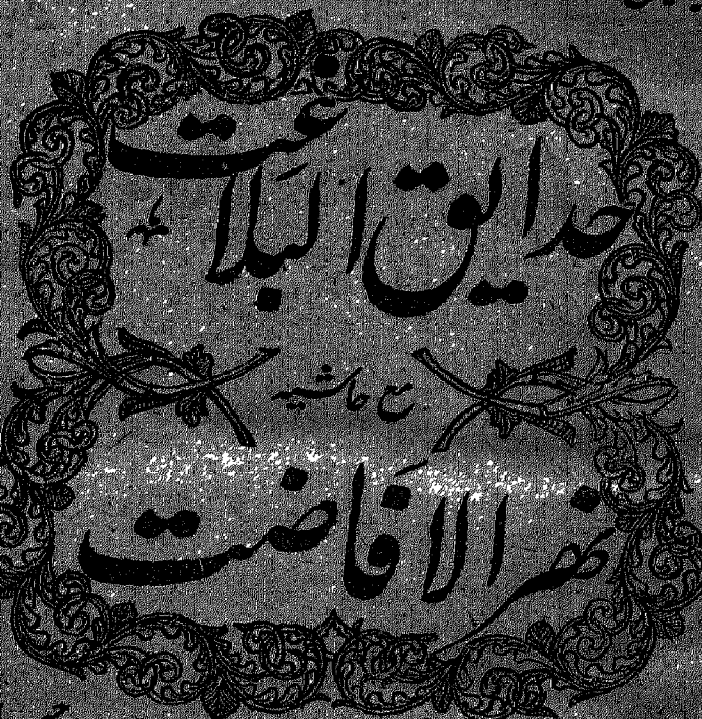 حدایق البلاغت
مع حاشیه
نهر الافاضت